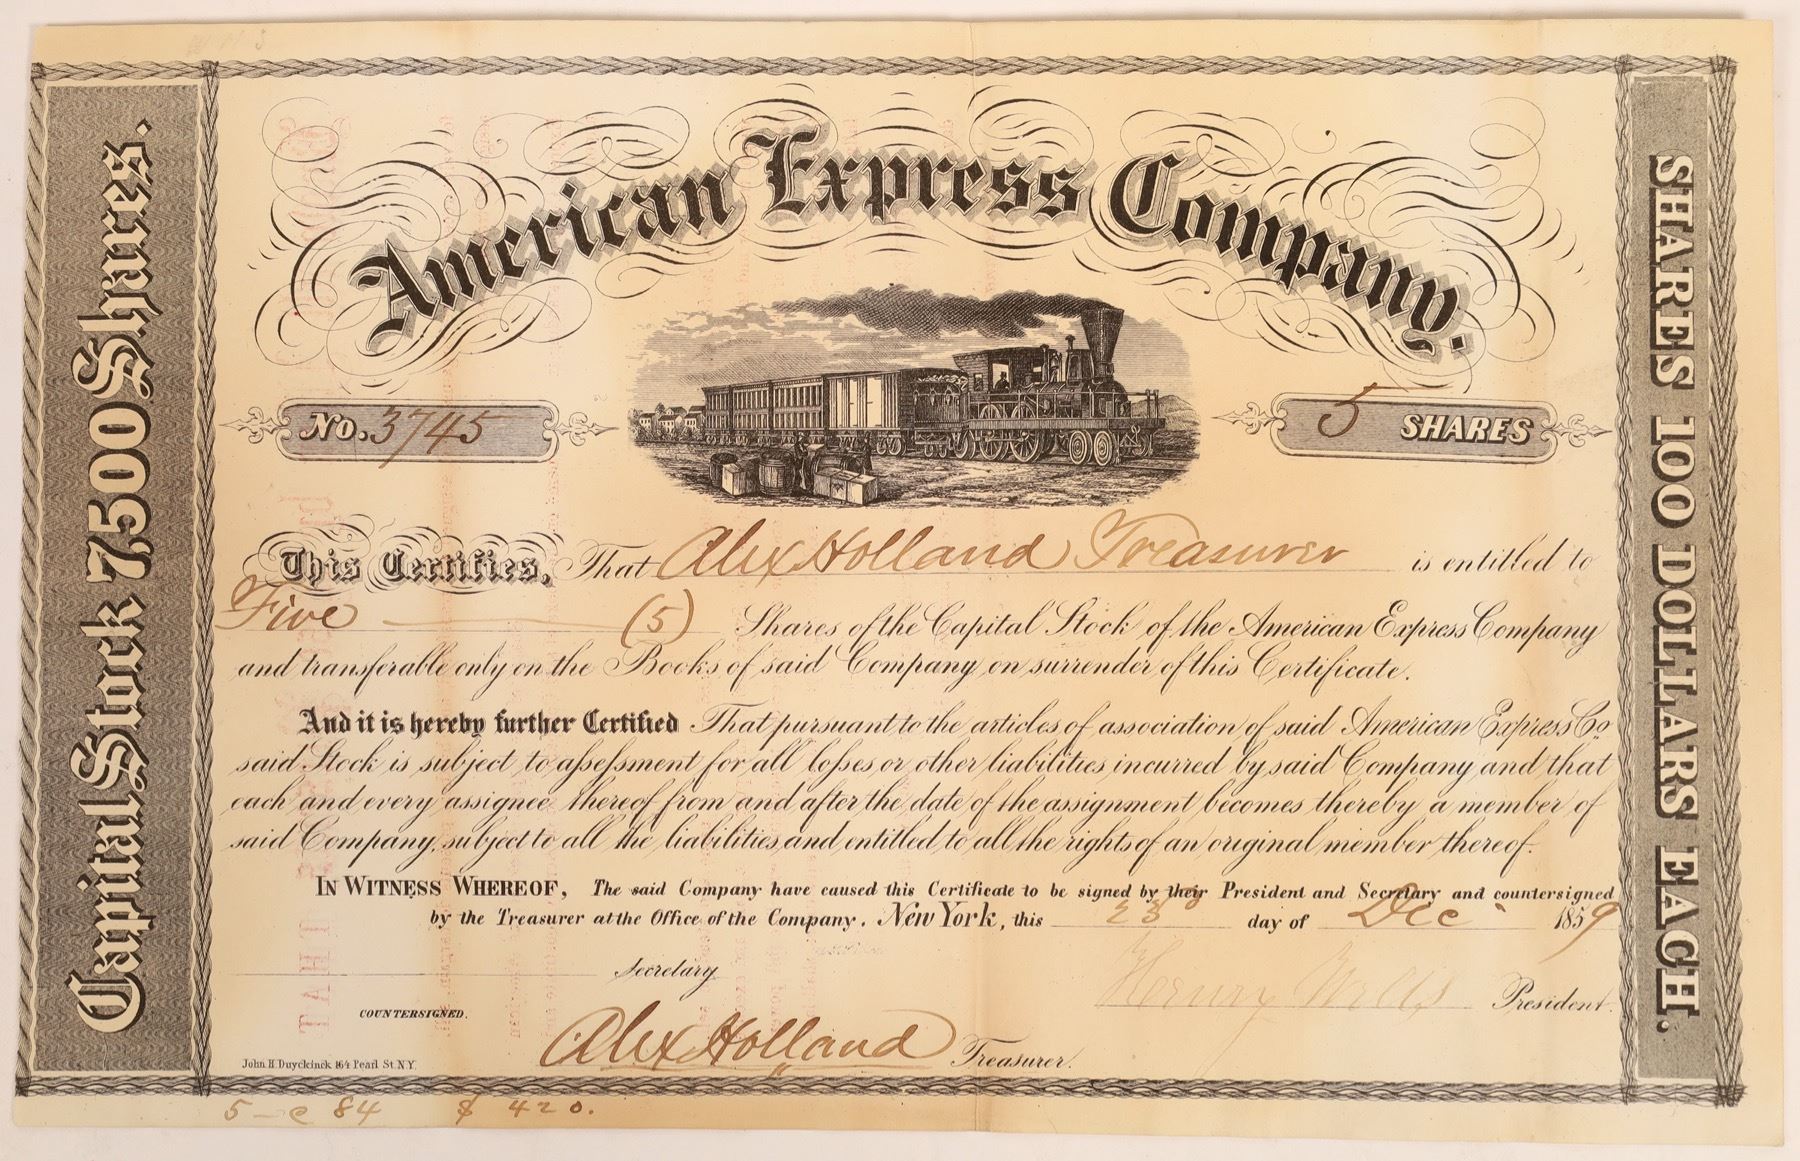 American Express Company.
Capital Stock 7500 Shares.
SHARES 100 DOLLARS EACH.
No. 3745
5 SHARES
This Certifies, That Alex Holland Treasurer is entitled to
Five (5) Shares of the Capital Stock of the American Express Company
and transferable only on the Books of said Company on surrender of this Certificate.
And it is hereby further Certified That pursuant to the articles of association of said American Express Co.
said Stock is subject to assessment for all losses or other liabilities incurred by said Company and that
each and every assignee thereof from and after the date of the assignment becomes thereby a member of
said Company, subject to all the liabilities, and entitled to all the rights of an original member thereof.
IN WITNESS WHEREOF, The said Company have caused this Certificate to be signed by their President and Secretary and countersigned
by the Treasurer at the Office of the Company. New York, this 23 day of Dec 1859
Secretary
Henry Wells President.
COUNTERSIGNED.
Alex Holland Treasurer.
John H. Duyckinck 164 Pearl St. N.Y.
5 - @ 84 $ 420.